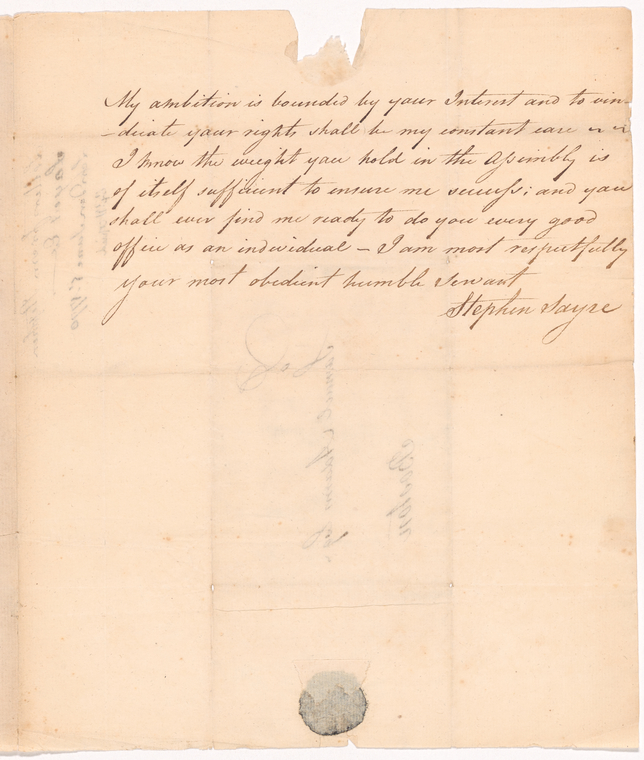 My ambition is bounded by your Interest and to vin-
-dicate your rights shall be my constant care ~ ~
I know the weight you hold in the Assembly is
of itself sufficient to ensure me success; and you
shall ever find me ready to do you every good
office as an individual – I am most respectfully
your most obedient humble Servant
Stephen Sayre
To
Samuel Adams Esq.
Boston